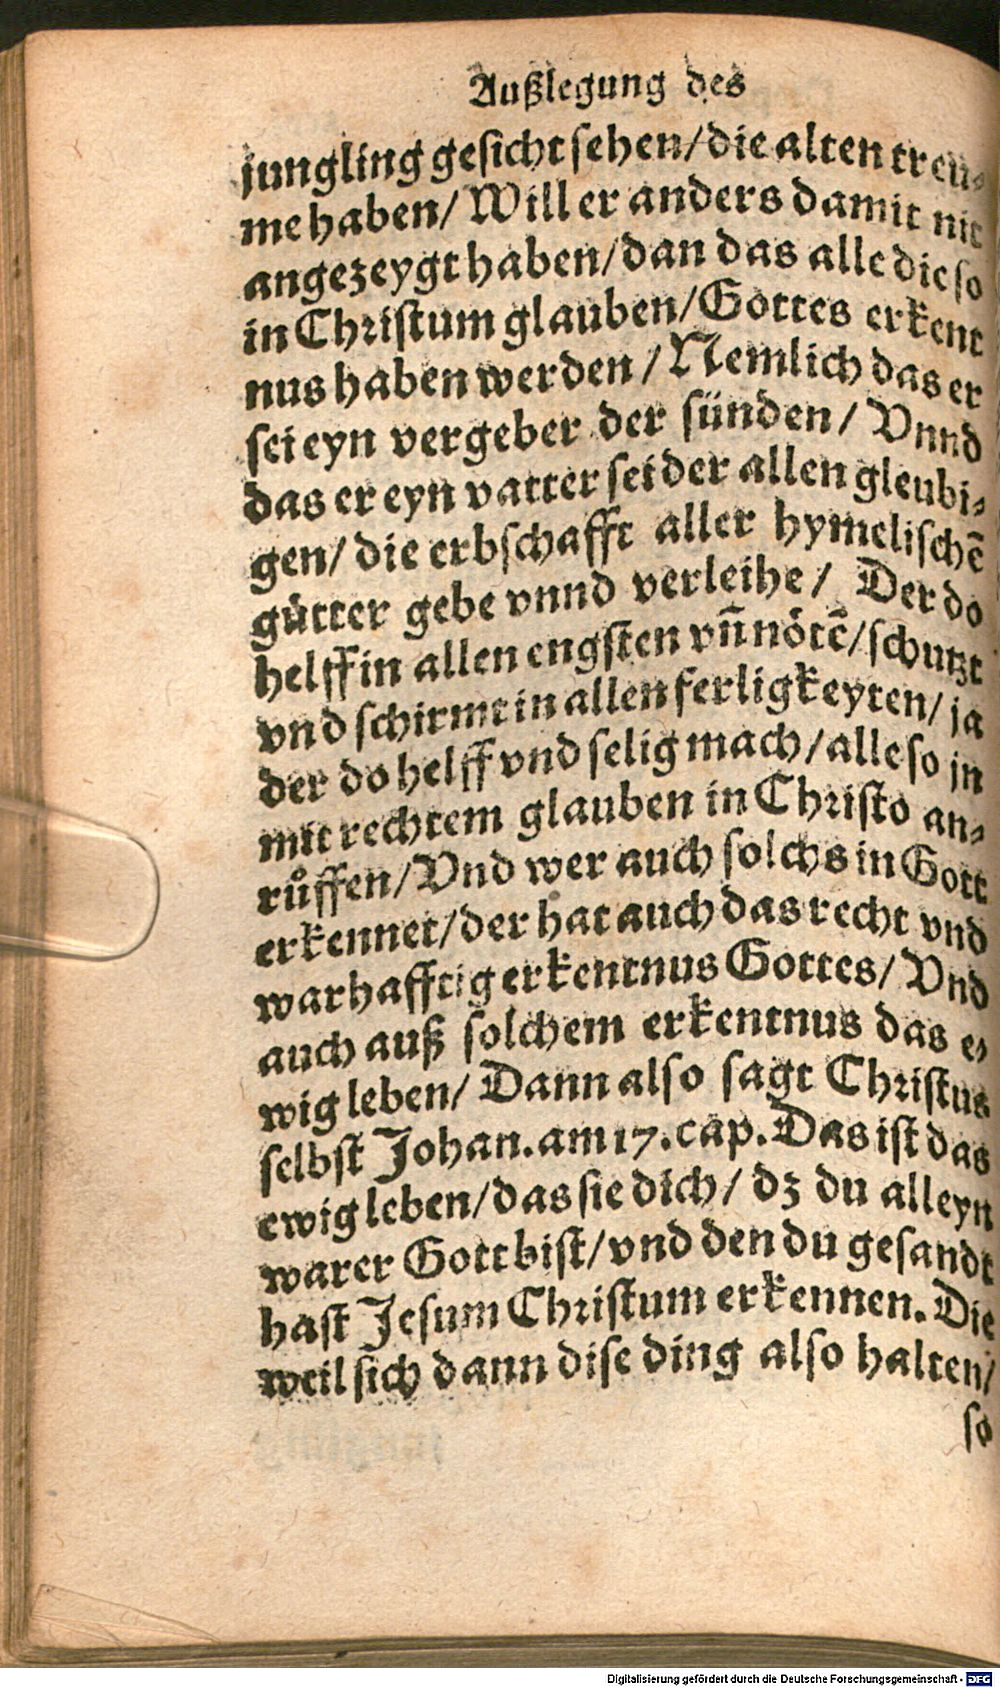 Außlegung des
jungling gesicht sehen/ die alten treu-
me haben/ Will er anders damit nit
angezeygt haben/ dan das alle die so
in Christum glauben/ Gottes erkent
nus haben werden/ Nemlich das er
sei eyn vergeber der sünden/ Vnnd
das er eyn vatter sei der allen gleubi-
gen/ die erbschafft aller hymelischē
gütter gebe vnnd verleihe/ Der do
helff in allen engsten vn̄ nötē/ schutzt
vnd schirmt in allen ferligkeyten/ ja
der do helff vnd selig mach/ alle so jn
mit rechtem glauben in Christo an-
růffen/ Vnd wer auch solchs in Gott
erkennet/ der hat auch das recht vnd
warhafftig erkentnus Gottes/ Vnd
auch auß solchem erkentnus das e-
wig leben/ Dann also sagt Christus
selbst Johan. am 17. cap. Das ist das
ewig leben/ das sie dich/ dz du alleyn
warer Gott bist/ vnd den du gesandt
hast Jesum Christum erkennen. Die
weil sich dann dise ding also halten/
so
Digitalisierung gefördert durch die Deutsche Forschungsgemeinschaft - DFG